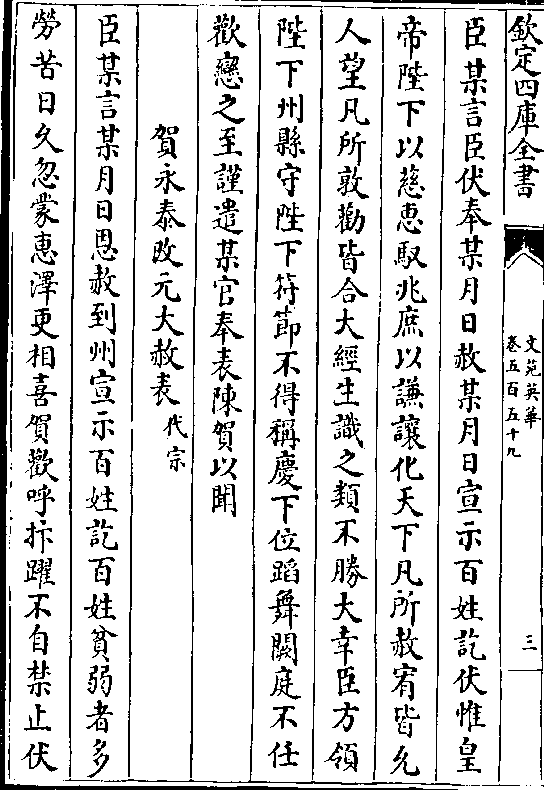 欽定四庫全書
文苑英華
卷五百五十九
三
臣某言臣伏奉某月日赦某月日宣示百姓訖伏惟皇
帝陛下以慈惠馭兆庶以謙讓化天下凡所赦宥皆允
人望凡所敦勸皆合大經生識之類不勝大幸臣方領
陛下州縣守陛下符節不得稱慶下位蹈舞闕庭不任
歡戀之至謹遣某官奉表陳賀以聞
賀永泰改元大赦表代宗
臣某言某月日恩赦到州宣示百姓訖百姓貧弱者多
勞苦日久忽蒙惠澤更相喜賀歡呼抃躍不自禁止伏